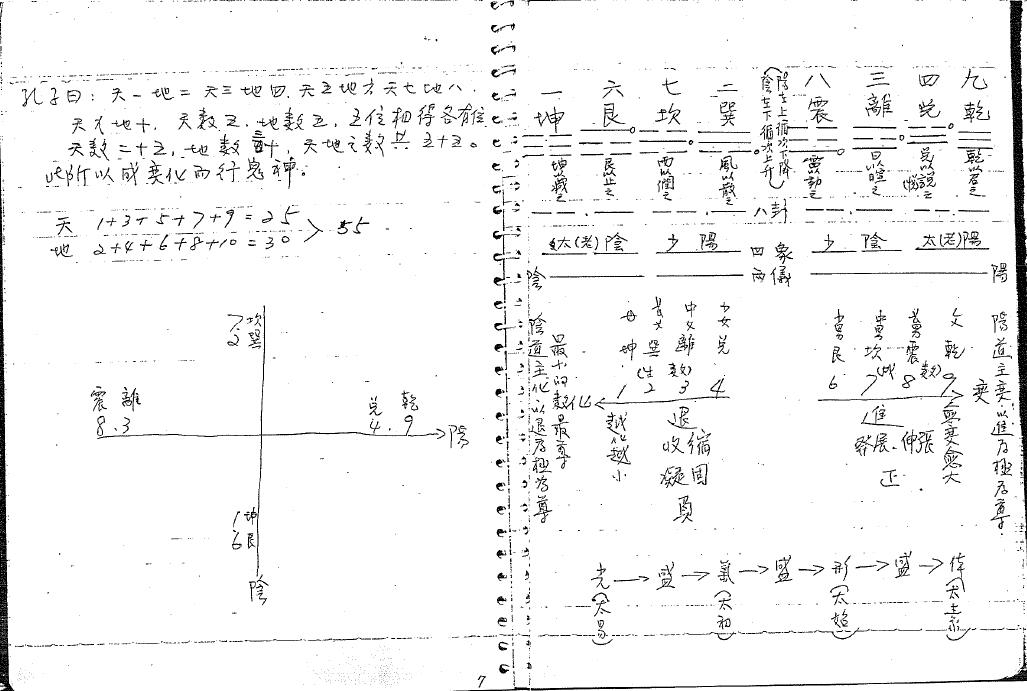 孔子曰：天一地二天三地四，天五地六天七地八，
天九地十，天數五，地數五，五位相得各有位
天數二十五，地數三十，天地之數共五十五。
此所以成变化而行鬼神。
天 1+3+5+7+9=25
地 2+4+6+8+10=30
55
7 坎
2 巽
震 離
8.3
兌 乾
4.9
陽
1 坤
6 艮
陰
7
一 六 七 二 八 三 四 九
坤 艮 坎 巽 震 離 兌 乾
(陽左上循次下降
陰左下循次上升)
坤以藏之
艮以止之
雨以潤之
風以散之
雷以動之
日以晅之
兌以說之
悅
乾以君之
八卦
太(老)陰 少陽 四象 少陰 太(老)陽
陰 兩儀 陽
母坤 長女巽 中女離 少女兌
少男艮 中男坎 長男震 父乾
(生數)
(成數)
1 2 3 4
6 7 8 9
化
变
退
進
收縮
凝固
負
發展.伸張
正
越化越小
愈变愈大
陰道主化以退为極为尊
最小的數最尊
陽道主变以進为極为尊
光→盛→氣→盛→形→盛→体
(太易) (太初) (太始) (太素)